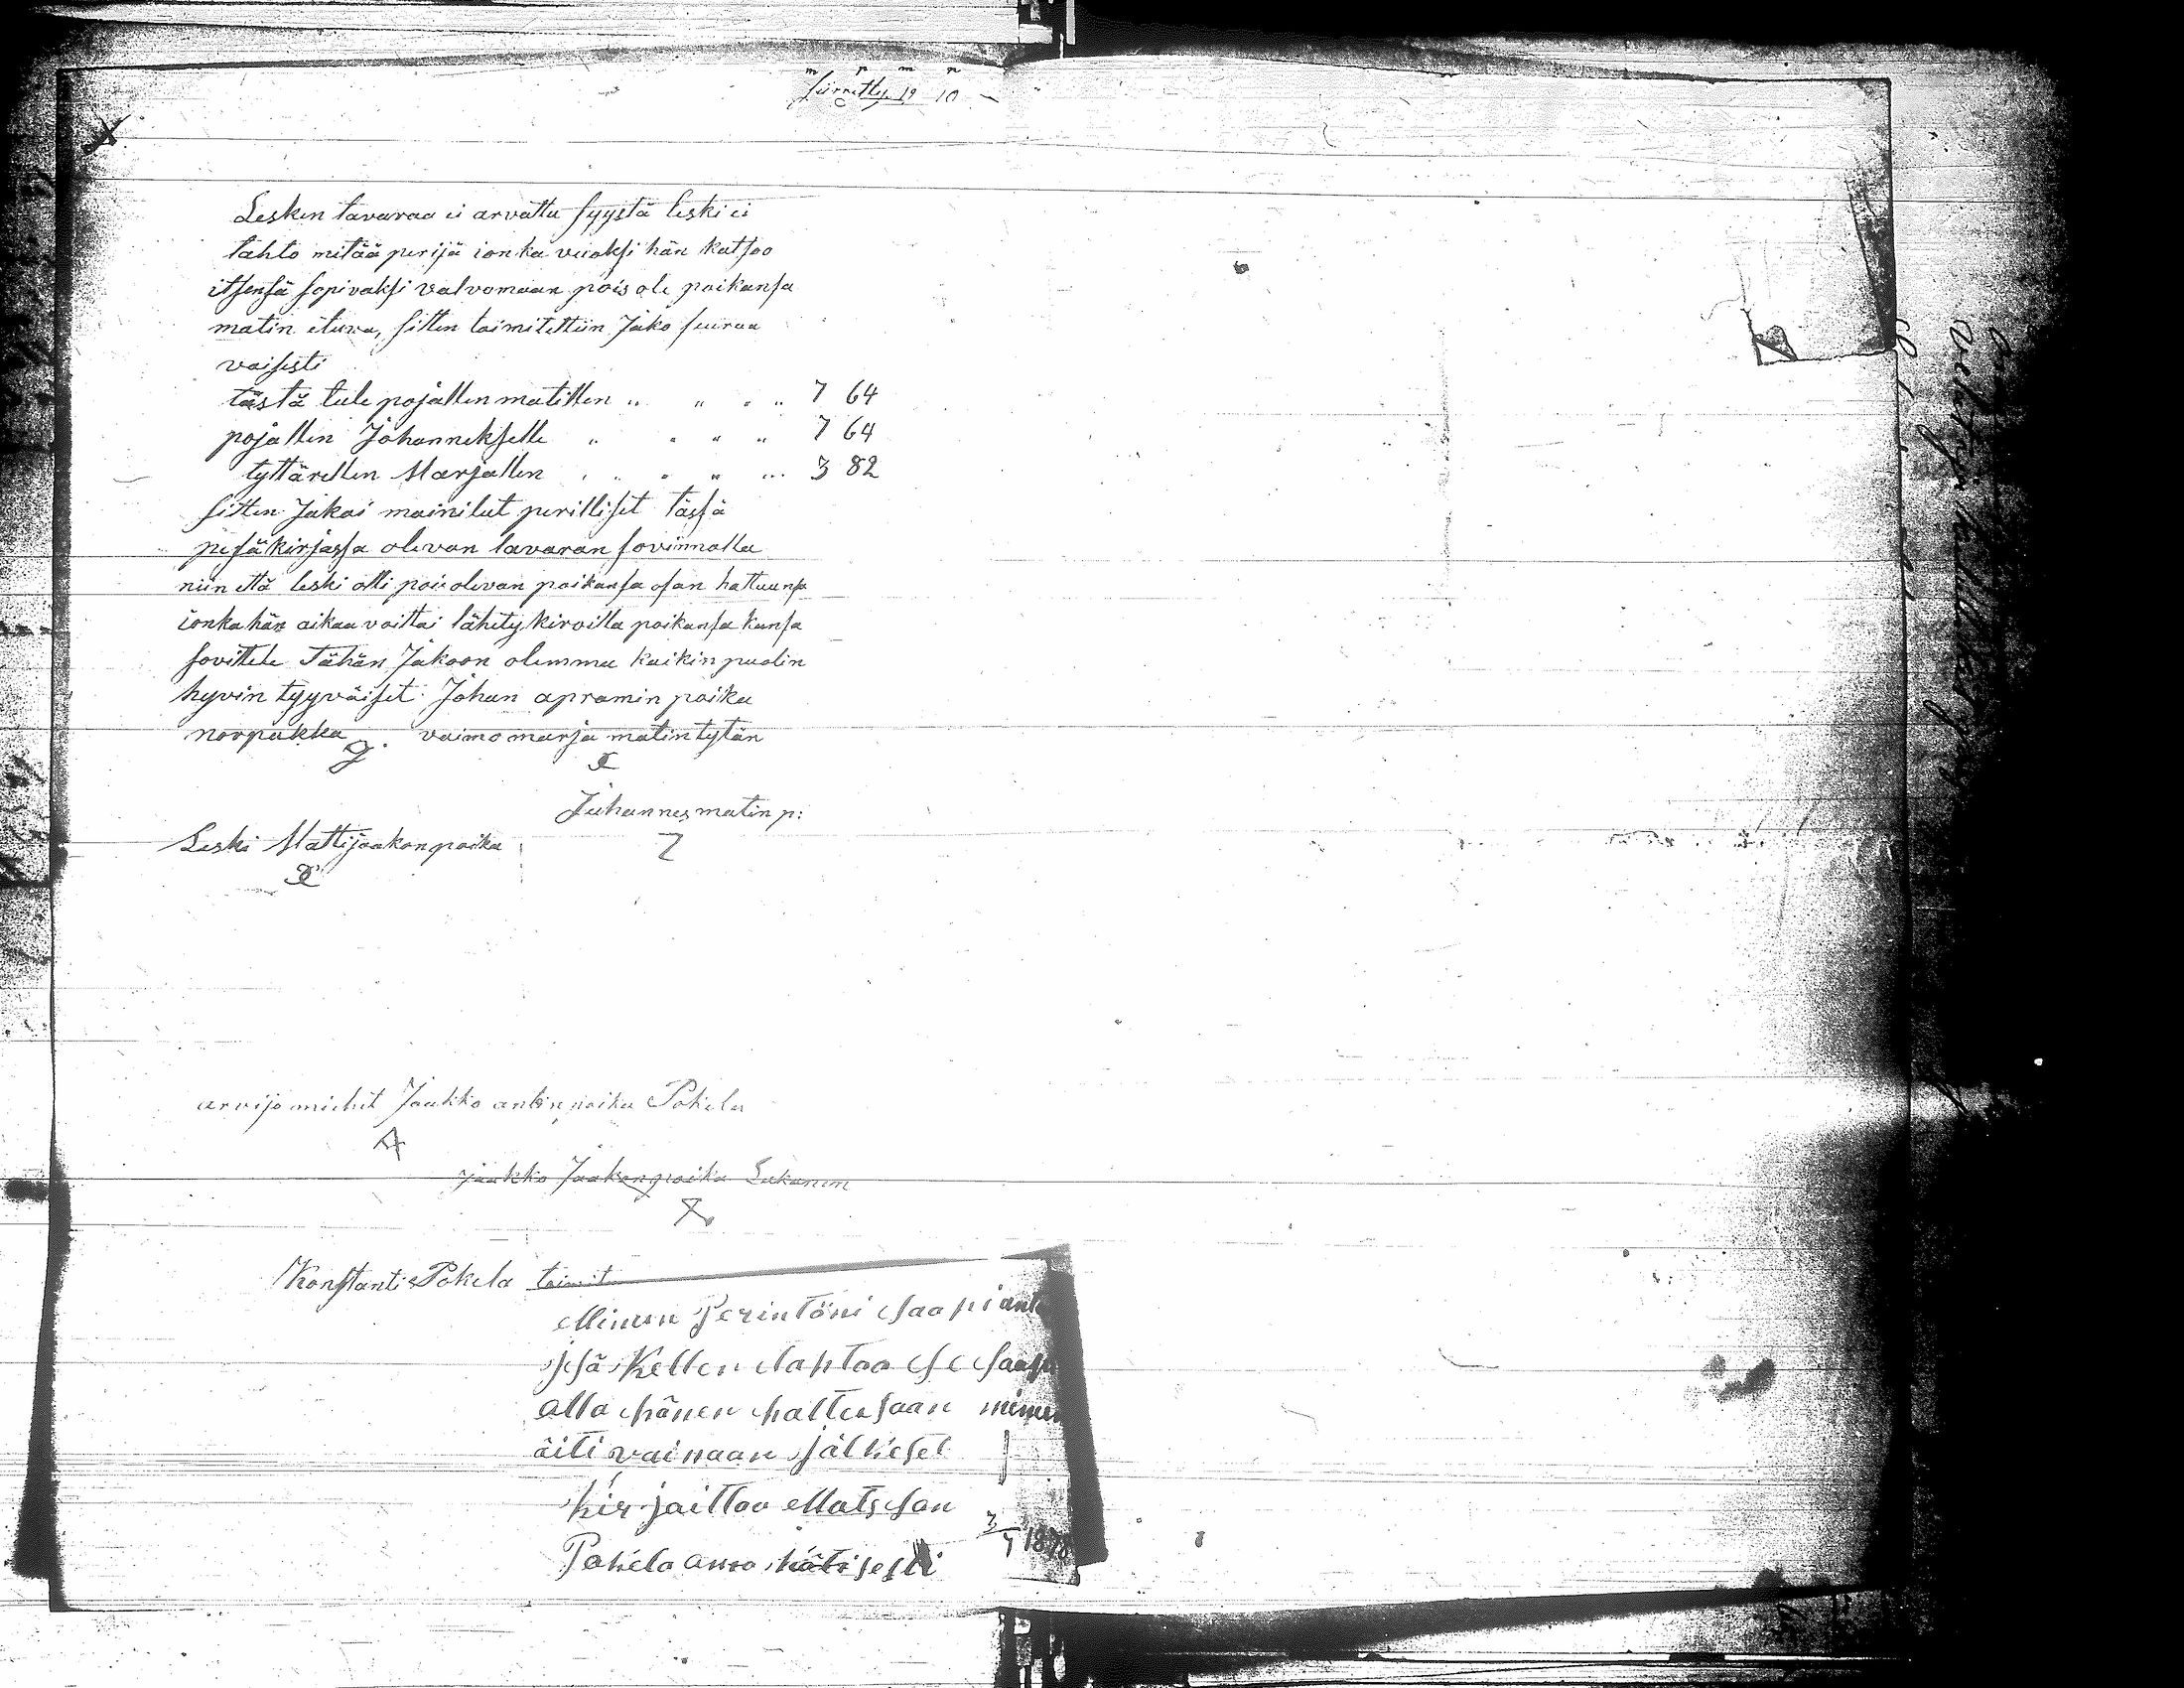 m p m p
Siirretty 19 10 -
Lesken tavaraa ei arvattu syystä leski ei
tahto mitää perijä ionka vuoksi hän katsoo
itsensä sopivaksi valvomaan pois ole poikansa
matin etuva, sitten toimitettiin Jako seuraa
vaisesti
tästä tule pojallen matillen „ „ „ „ 7 64
pojallen Johannekselle „ „ „ „ 7 64
tyttärellen Marjallen „ „ „ „ 3 82
sitten Jakoi mainitut perilliset tässä
pesäkirjassa olevan tavaran sovinnolla
niin että leski otti pois olevan poikansa osan haltuunsa
ionka hän aikaa voittai lähety kirvoilla poikansa kansa
sovittele Tähän Jakoon olemma kaikin puolin
hyvin tyyväiset. Johan apramin poika
norpakka vaimo marja matin tytän
Juhannes matin p:
Leski Matti jaakon poika
arvijo miehet Jaakko antin poika Pokela
jaakko Jaakon poika Lukanen
Konstanti Pokela toimit
Minun Perintöni saapi
isä Kellen tahtoo se saapi
olla hänen haltusaan minun
äiti vainaan jälkeset
kirjoittaa Mats son
Pokela